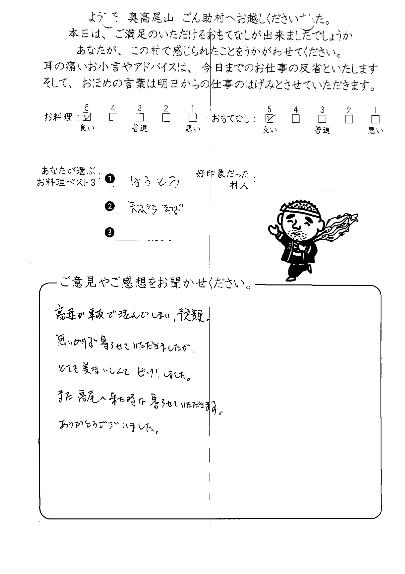 ようこそ 奥高尾山 ごん助村へお越しくださいました。
本日は、ご満足のいただけるおもてなしが出来ましたでしょうか
あなたが、この村で感じられたことをうかがわせてください。
耳の痛いお小言やアドバイスは、今日までのお仕事の反省といたします
そして、おほめの言葉は明日からの仕事のはげみとさせていただきます。
お料理: 5 4 3 2 1 おもてなし: 5 4 3 2 1
良い 普通 悪い 良い 普通 悪い
あなたが選ぶ
お料理ベスト3
1 ほうとう
2
3
好印象だった
村人
ご意見やご感想をお聞かせください。
高尾が で混んでしまい、
思いの 寄らせていただきましたが、
とても美味しくて しました。
また高尾へ来た時は寄らせていただきます。
ありがとうございました。